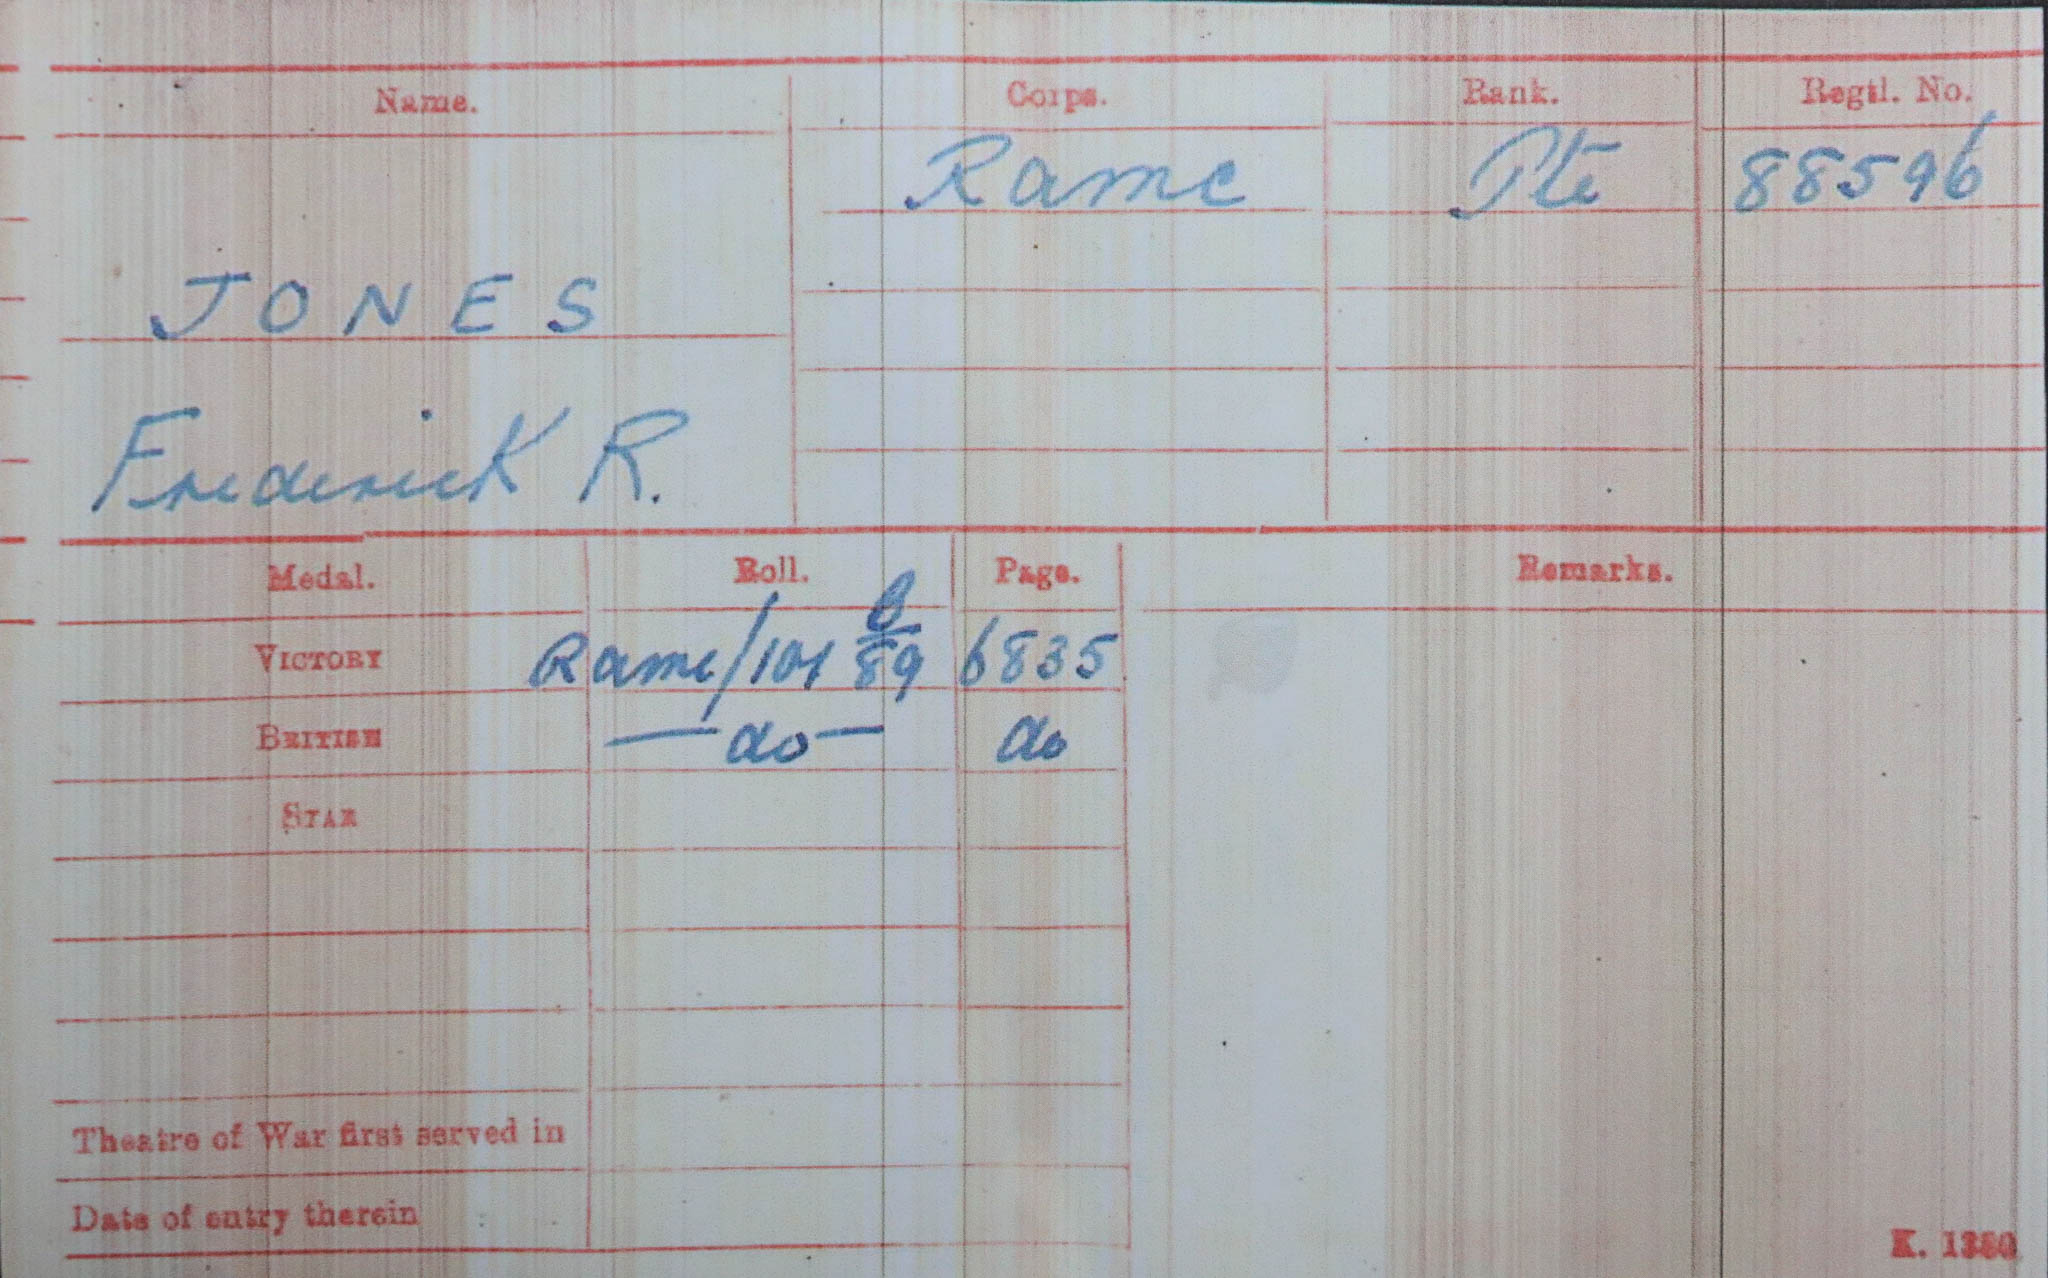 Name. Corps. Rank. Regtl. No.
RAMC Pte 88596
JONES
Frederick R.
Medal. Roll. Page. Remarks.
VICTORY RAMC/101 B/89 6835
BRITISH — do — do
STAR
Theatre of War first served in
Date of entry therein
K. 1380